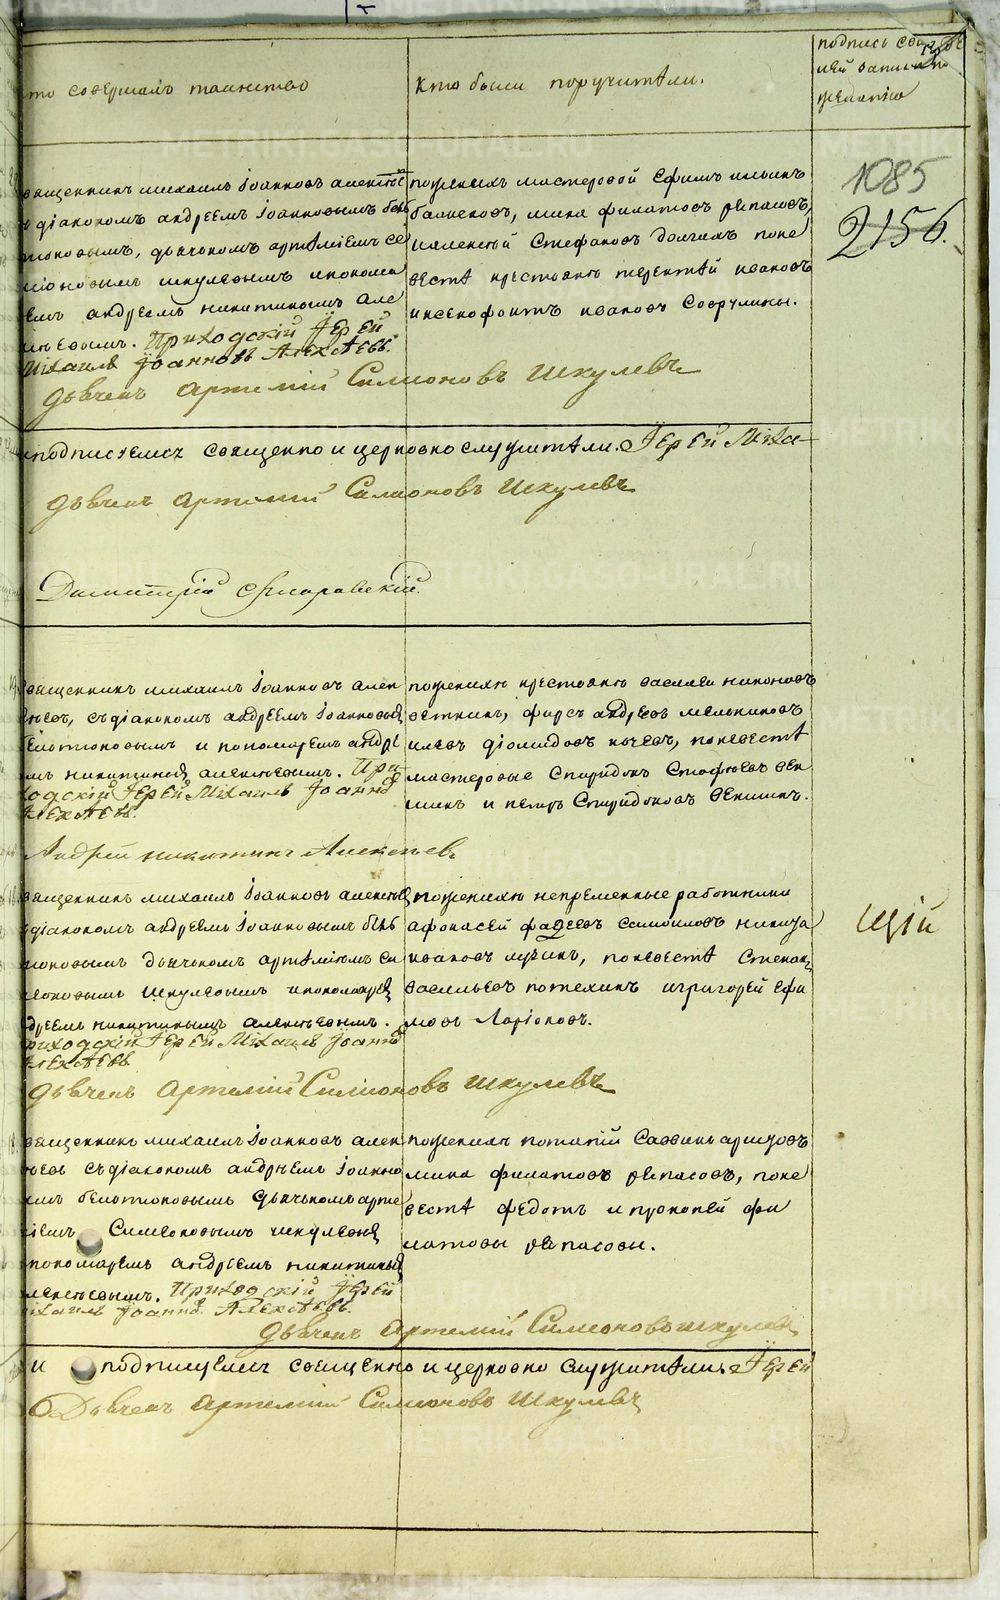 то совершалъ таинство
Кто были поручители.
подпись сви
лей записи по
желанію
1085
2156.
вященникъ михаилъ Іоанновъ алексѣе
діакономъ андреемъ Іоанновымъ бѣло
токовымъ, дьячкомъ артеміемъ се
міоновымъ шкулевымъ ипонома
емъ андреемъ никитинымъ але
ксѣевымъ. Приходскій Іерей
Михаилъ Іоанновъ Алексѣевъ.
Дьячекъ Артемій Симионовъ Шкулевъ
поженихѣ мастеровой Ефимъ ильинъ
мина филатовъ рѣпасовъ,
иалексѣй Стефановъ Долгихъ поне
вестѣ крестьяне терентей ивановъ
иксенофонтъ ивановъ
подписуемся священно и церковно служители. Іерей Миха
Дьячекъ Артемій Симионовъ Шкулевъ
Димитрій
вященникъ михаилъ Іоанновъ алек
ѣевъ, съдіакономъ андреемъ Іоанновым
бѣлотоковымъ и пономаремъ андре
мъ никитинымъ алексѣевымъ. При
ходскій Іерей Михаилъ Іоанно
Алексѣевъ.
Андрей никитинъ Алексѣевъ
поженихѣ крестьяне василеи никоновъ
веткинъ, фирсъ андреевъ мельниковъ
илевъ діомидовъ кычевъ, поневестѣ
мастеровые Спиридонъ
и петръ Спиридоновъ
вященникъ михаилъ Іоанновъ алексѣев
діакономъ андреемъ Іоанновымъ бѣло
токовымъ дьячькомъ артеміемъ Си
меоновымъ шкулевымъ ипономарем
дреемъ никитинымъ алексѣевымъ.
риходскій Іерей Михаилъ Іоанно
Алексѣевъ
Дьячекъ Артемій Симіоновъ Шкулевъ
поженихѣ непременные работники
афонасей фадеевъ самоиловъ
ивановъ поневестѣ Степанъ
васильевъ потехинъ игригорей ефи
мовъ Ларіоновъ.
щій
вященникъ михаилъ Іоанновъ алек
ѣевъ съдіакономъ андреемъ Іоанно
ымъ бѣлотоковымъ дьячькомъ арте
міемъ Симеоновымъ шкулевым
пономаремъ андреемъ никитиным
алексѣевымъ. Приходскій Іерей
ихаилъ Іоанно. Алексѣевъ.
Дьячекъ Артемій Симионовъ шкулев
поженихѣ потапій Саввинъ
мина филатовъ рѣпасовъ, поне
вестѣ федотъ и прокопей фи
латовы рѣпасовы.
и подписуемся священно и церковно служители. Іерей
Дьячекъ Артемій Симионовъ Шкулевъ
METRIKI.GASO-URAL.RU